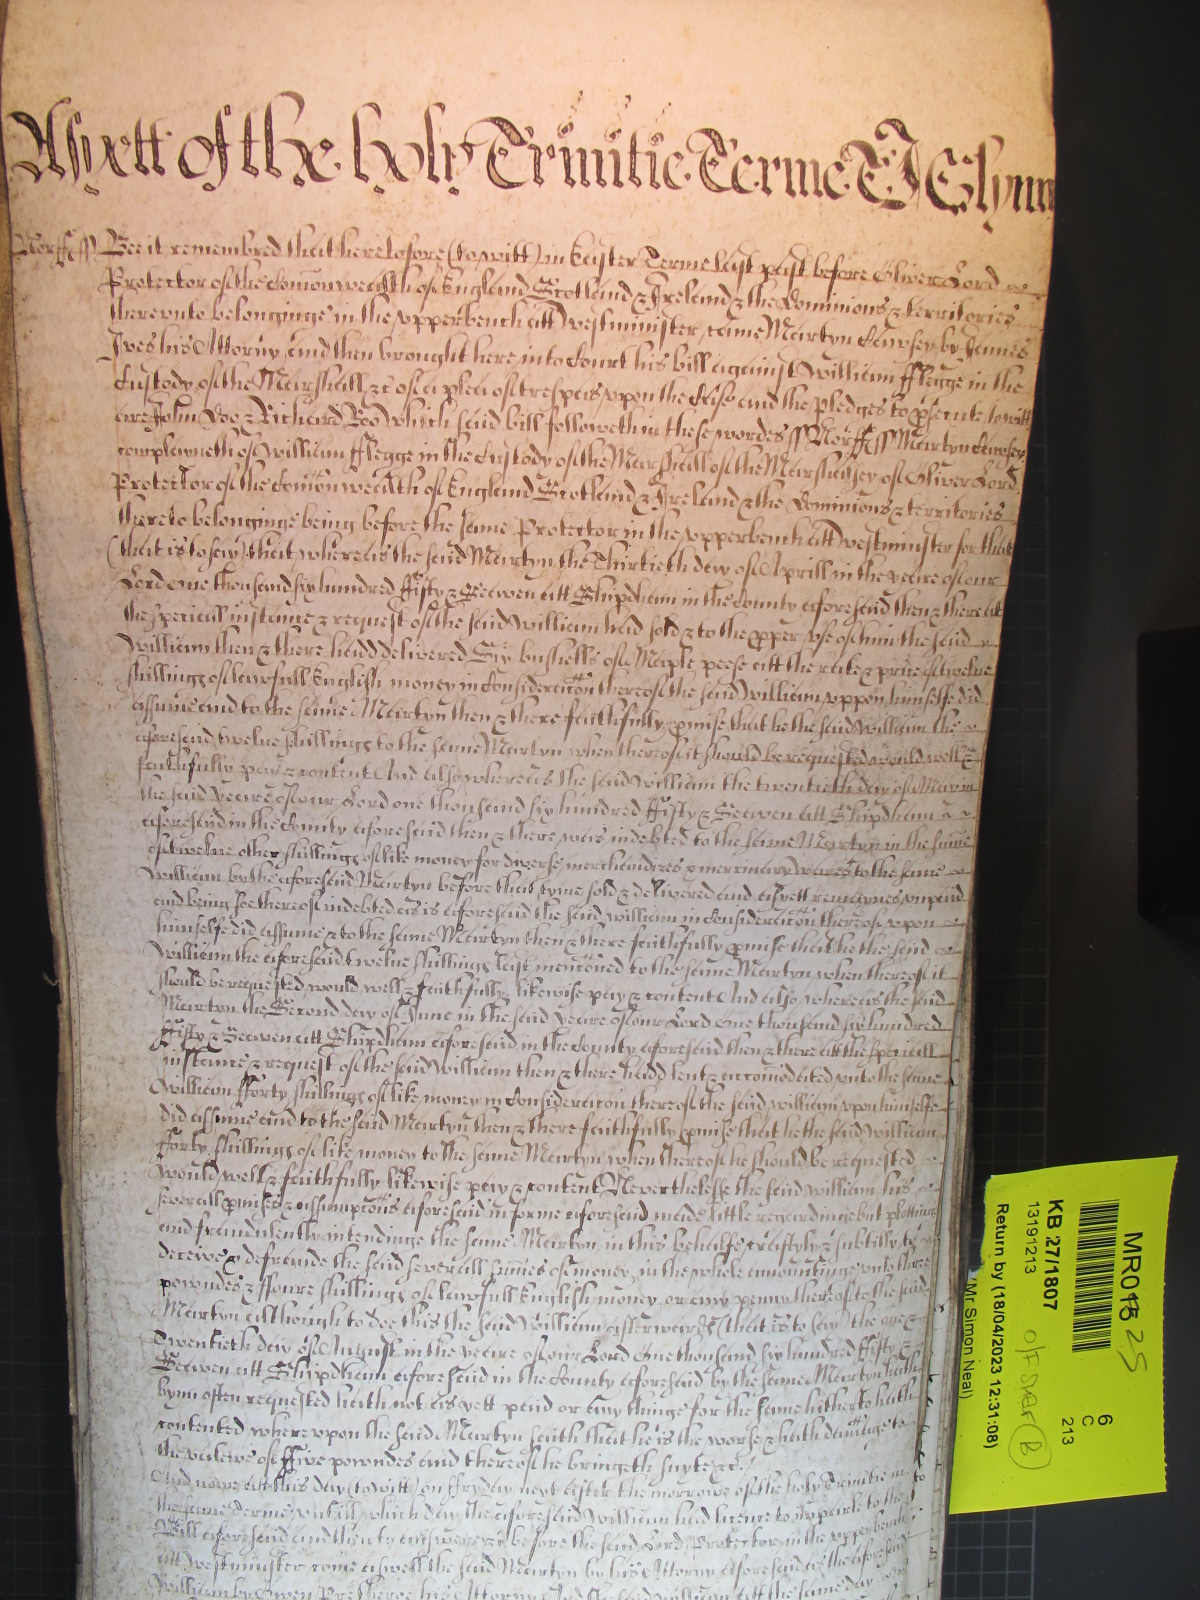 As yett of the holy Trinitie Terme T J Glynn
Norff ss Bee it remembred that heretofore (to witt) in Easter Terme last past before Oliver Lord
Protector of the Comonwealth of England Scotland & Ireland & the Dominions & territories
there vnto belonginge in the vpper bench att Westminister came Martyn Cawsey by James
Ives his Attorny and then brought here into Court his bill against William fflegge in the
Custody of the Marshall &c of a plea of trespas vpon the Case and the pledges to psecute to witt
are John Doo & Richard Roo which said bill followeth in these wordes ss Norff ss Martyn Cawsey
complayneth of William fflegge in the Custody of the Marshall of the Marshalsey of Oliver Lord
Protector of the Comonwealth of England Scotland & Ireland & the Dominions & territories
thereto belonginge being before the same Protector in the vpper bench att Westminster for that
(that is to say) that whereas the said Martyn the Thirtieth day of Aprill in the yeare of our
Lord one thousand six hundred ffifty & Seaven att Shipdham in the County aforesaid then & there att
the speciall instance & request of the said William had sold & to the pper vse of him the said
William then & there hadd delivered Six bushells of Maple peese att the rate & price of twelve
shillings of lawfull English money in Consideracon thereof the said William vppon himselfe did
assume and to the same Martyn then & there faithfully pmise that he the said William the
aforesaid twelve shillings to the same Martyn when thereof it should be requested would well &
faithfully pay & content And also whereas the said William the twentieth day of May in
the said yeare of our Lord one thousand six hundred ffifty & Seaven att Shipdham
aforesaid in the County aforesaid then & there was indebted to the same Martyn in the sume
of twelve other shillings of like money for diverse merchandizes & mercimary wares to the same
William by the aforesaid Martyn before that tyme sold & delivered and as yett remaynes vnpaid
and being soe thereof indebted as is aforesaid the said William in Consideracon thereof vpon
himselfe did assume & to the same Martyn then & there faithfully pmise that he the said
William the aforesaid twelve shillings last mentoned to the same Martyn when thereof it
should be requested would well & faithfully likewise pay & content And also whereas the said
Martyn the Second day of June in the said yeare of our Lord one thousand six hundred
ffifty & Seaven att Shipdham aforesaid in the County aforesaid then & there att the speciall
instance & request of the said William then & there hadd lent & accomodated vnto the same
William fforty shillings of like money in Consideracon thereof the said William vpon himselfe
did assume and to the said Martyn then & there faithfully pmise that he the said William
fforty shillings of like money to the same Martyn when thereof he should be requested
would well & faithfully likewise pay & content Neverthelesse the said William his
severall pmises & assumptons aforesaid in forme aforesaid made little regardinge but plotting
and fraudulently intendinge the same Martyn in this behalfe craftyly & subtilly to
deceive & defraude the said severall sumes of money in the whole amountinge vnto three
powndes & ffoure shillings of lawfull English money or any penny thereof to the said
Martyn although to doe this the said William afterwards (that is to say) the one &
Twentieth day of August in the yeare of our Lord One thousand six hundred ffifty &
Seaven att Shipdham aforesaid in the County aforesaid by the same Martyn hath
bynn often requested hath not as yett paid or any thinge for the same hitherto hath
contented where vpon the said Martyn saith that he is the worse & hath damage to
the valewe of ffive powndes and thereof he bringeth suyte &c
And nowe att this day (to witt) on ffryday next after the morrowe of the holy Trinitie in
the same Terme vntill which day the aforesaid William had licence to imparle to the
Bill aforesaid and then to answere &c before the said Lord Protector in the vpper bench
att Westminster come aswell the said Martyn by his Attorny aforesaid as the aforesaid
William by Owen his Attorny And the said William att the same day
MR018 25
6
C
213
KB 27/1807
13191213
O/F Star B
Return by (18/04/2023 12:31:08)
(Mr Simon Neal)